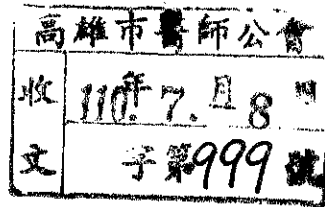 高雄市醫師公會
收 110年7.月8日
文 字第999號